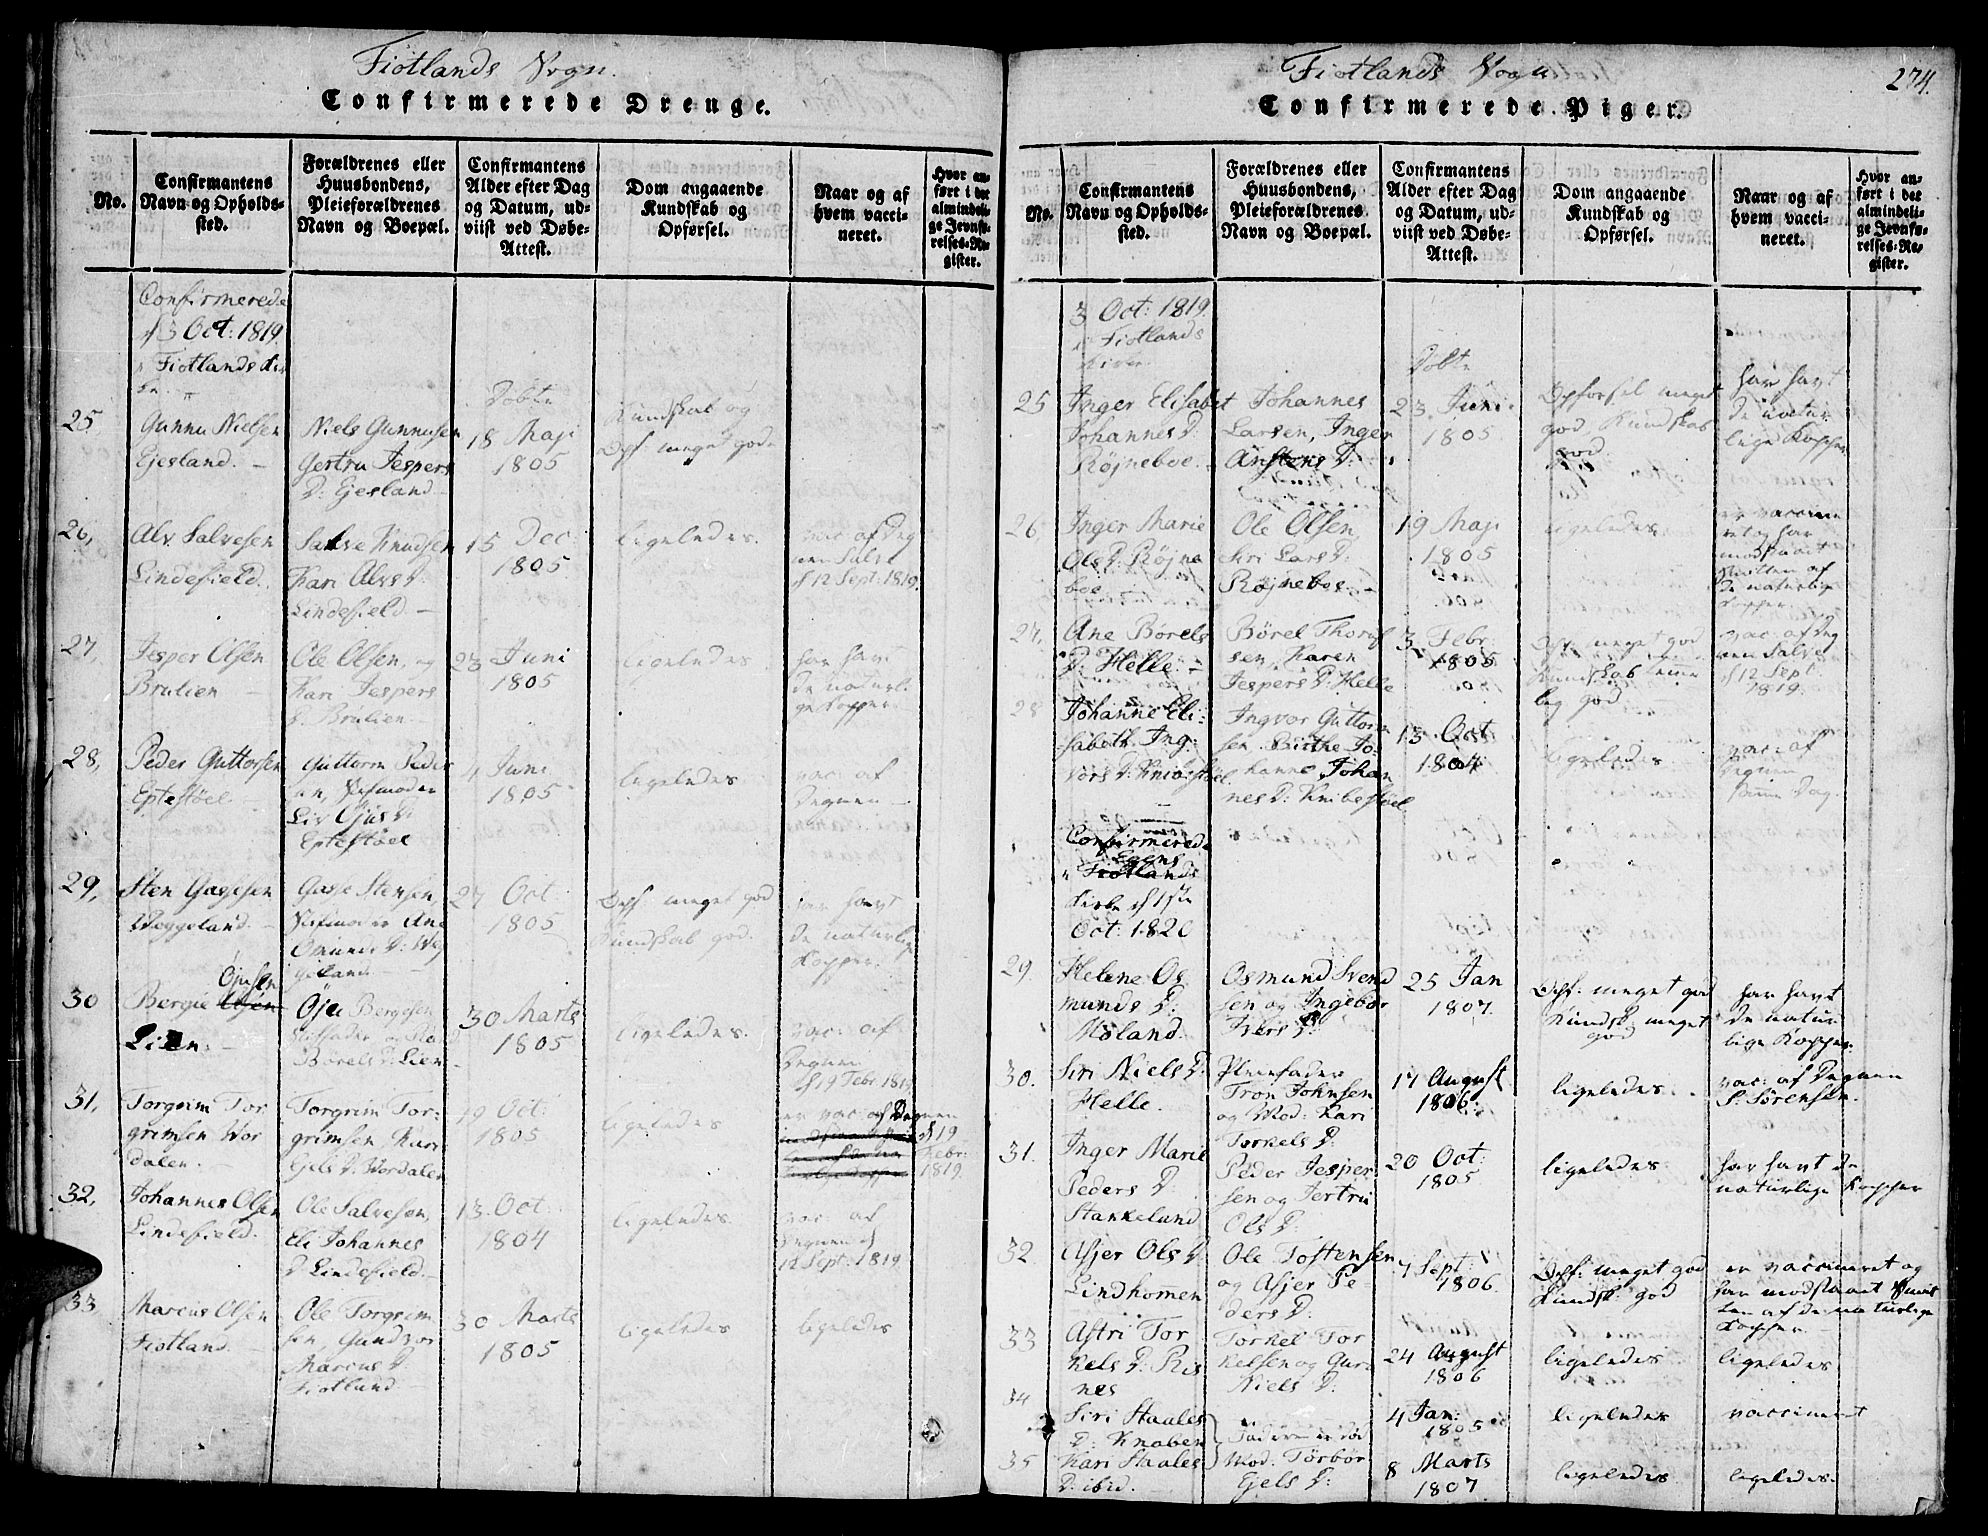 Fiotlands Sogn.
Confirmerede Drenge.
No.
Confirmantens
Navn og Opholds-
sted.
Forældrenes eller
Huusbondens,
Pleieforældrenes
Navn og Boepæl.
Confirmantens
Alder efter Dag
og Datum, ud-
viist ved Døbe-
Attest.
Dom angaaende
Kundskab og
Opførsel.
Naar og af
hvem vacci-
neret.
Hvor an-
ført i det
almindeli-
ge Jevnfø-
relses-Re-
gister.
Confirmerede
d 3 Oct: 1819
i Fiotlands Kir
ke.
Døbte
25
Gunnu Nielsen
Ejesland. -
Niels Gunnusen
Gertru Jespers
D: Ejesland -
18 Maji
1805
Kundskab og
Opf: meget god.
26,
Alv Salvesen
Lindefield.
Salve Knudsen
Kari Alvs D:
Lindefield -
15 Dec:
1805
ligeledes.
vac: af Deg
nen Salve
d 12 Sept: 1819.
27,
Jesper Olsen
Brulien -
Ole Olsen, og
Kari Jespers
D: Brulien -
23 Juni
1805
ligeledes
har havt
de naturli
ge Kopper.
28,
Peder Guttorsen
Eptestøel -
Guttorm Peder
sen, Stifmoder
Liv Ojus D:
Eptestøel
4 Juni
1805
ligeledes
vac: af
Degnen
29,
Sten Gasesen
Weggeland. -
Gase Stensen,
Stifmoder Ane
Omunds D: Weg
geland
27 Oct:
1805
Opf: meget god
Kundskab god.
har havt
de naturlige
Kopper.
30
Bergie Ojusen
Lien. -
Oju Bergesen
Stiffader og
Børels D: Lien -
30 Marts
1805
ligeledes.
vac: af
Degnen
d 19 Febr: 1819
31,
Torgrim Tor
grimsen Wor
dalen. -
Torgrim Tor-
grimsen, Kari
Ejels D: Wordalen
19 Oct:
1805
ligeledes
er vac: af Degnen
d 19
Febr:
1819.
32,
Johannes Olsen
Lindefield.
Ole Salvesen,
Eli Johannes
D: Lindefield. -
13 Oct:
1804
ligeledes.
vac: af
Degnen d
12 Sept: 1819
33,
Marcus Olsen
Fiotland. -
Ole Torgrim
sen Gundvor
Marcus D:
Fiotland -
30 Marts
1805
ligeledes
ligeledes
Fiotlands Sogn
274.
Confirmerede Piger.
No.
Confirmantens
Navn og Opholds-
sted.
Forældrenes eller
Huusbondens,
Pleieforældrenes
Navn og Boepæl.
Confirmantens
Alder efter Dag
og Datum, ud-
viist ved Døbe-
Attest.
Dom angaaende
Kundskab og
Opførsel.
Naar og af
hvem vacci-
neret.
Hvor an-
ført i det
almindeli-
ge Jevnfø-
relses-Re-
gister.
3 Oct: 1819.
i Fiotlands
Kirke.
Døbte
25
Inger Elisabet
Johannes D:
Røjneboe.
Johannes
Larsen, Inger
Anstens D:
23 Juni
1805
Opførsel meget
god Kundskab
god.
har havt
de natur
lige Kopper
26
Inger Marie
Ols D: Røjne
boe
Ole Olsen
Siri Lars D:
Røjneboe. -
19 Maji
1805
ligeledes
er vaccine
ret og har
modstaaet
Smitten af
de naturlige
Kopper.
27,
Ane Børels
D: Helle -
Børel Thorul
sen, Karen
Jespers D: Helle
3 Febr:
1805
Opf: meget god
Kundskab teme
lig god
vac: af Deg
nen Salve
d 12 Sept.
1819.
28
Johanne Eli-
sabeth Ing-
vors D: Knibestøel
Ingvor Guttorm
sen. Birthe Jo-
hanne Johan
nes D: Knibestøel
13 Oct
1804
ligeledes
vac: af
Degnen
samme Dag.
Confirmerede
i Egens
Kirke d 1ste
Oct: 1820
29.
Helene Os
munds D:
Moland.
Osmund Svend
sen og Ingebor
Ivers D:
25 Jan
1807.
Opf: meget god
Kundsk. meget
god
har havt
de natur
lige Kopper.
30.
Siri Niels D:
Helle.
Pleiefader
Tron Johnsen
og Mod: Kari
Torkels D:
17 August
1806.
ligeledes.
vac: af Degnen
S. Sørensen.
31.
Inger Marie
Peders D:
Stankeland
Peder Jesper
sen og Jertru
Ols D:
20 Oct:
1805
ligeledes.
har havt de
naturlige Kopper
32
Asjer Ols D:
Lindhomen
Ole Tostensen
og Asjer Pe-
ders D:
7 Sept:
1806.
Opf: meget god
Kundsk: god
er vaccineret og
har modstaaet Smit
ten af de naturlige
Kopper. -
33
Astri Tor
kels D: Ris
nes
Torkel Tor
kelsen og Guri
Niels D:
24 August
1806
ligeledes.
ligeledes.
34
Siri Staales
D: Knaben
Faderen er død
4 Jan:
1805
ligeledes
vaccineret
35
Kari Staales
D: ibid. -
Mod: Torbor
Ejels D:
8 Marts
1807
ligeledes
ligeledes.